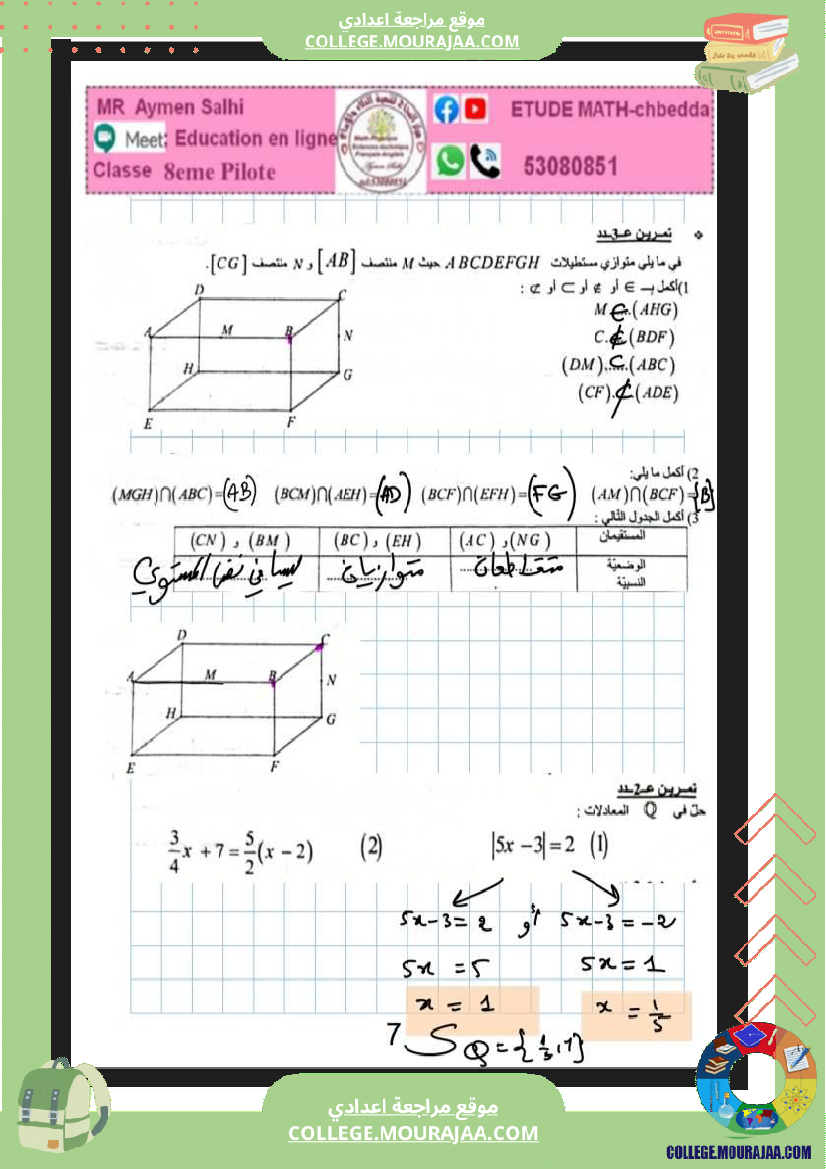 موقع مراجعة اعدادي
COLLEGE.MOURAJAA.COM
MR Aymen Salhi
Meet: Education en ligne
Classe 8eme Pilote
ETUDE MATH-chbedda
53080851
تمرين عـ3ـدد
في ما يلي متوازي مستطيلات ABCDEFGH حيث M منتصف [AB] و N منتصف [CG].
1) أكمل بـ ∈ أو ∉ أو ⊂ أو ⊄ :
M ∈ (AHG)
C ∉ (BDF)
(DM) ⊂ (ABC)
(CF) ⊄ (ADE)
D C
A M B N
H G
E F
2) أكمل ما يلي:
(AM)∩(BCF)={B} (BCF)∩(EFH)=(FG) (BCM)∩(AEH)=(AD) (MGH)∩(ABC)=(AB)
3) أكمل الجدول التالي :
المستقيمان (NG) و (AC) (EH) و (BC) (BM) و (CN)
الوضعية النسبية متقاطعان متوازيان ليسا في نفس المستوي
D C
A M B N
H G
E F
تمرين عـ2ـدد
حل في Q المعادلات :
|5x − 3| = 2 (1)
3/4 x + 7 = 5/2 (x − 2) (2)
5x-3 = 2 أو 5x-3 = -2
5x = 5 5x = 1
x = 1 x = 1/5
7 S_Q = {1/5, 1}
موقع مراجعة اعدادي
COLLEGE.MOURAJAA.COM
COLLEGE.MOURAJAA.COM